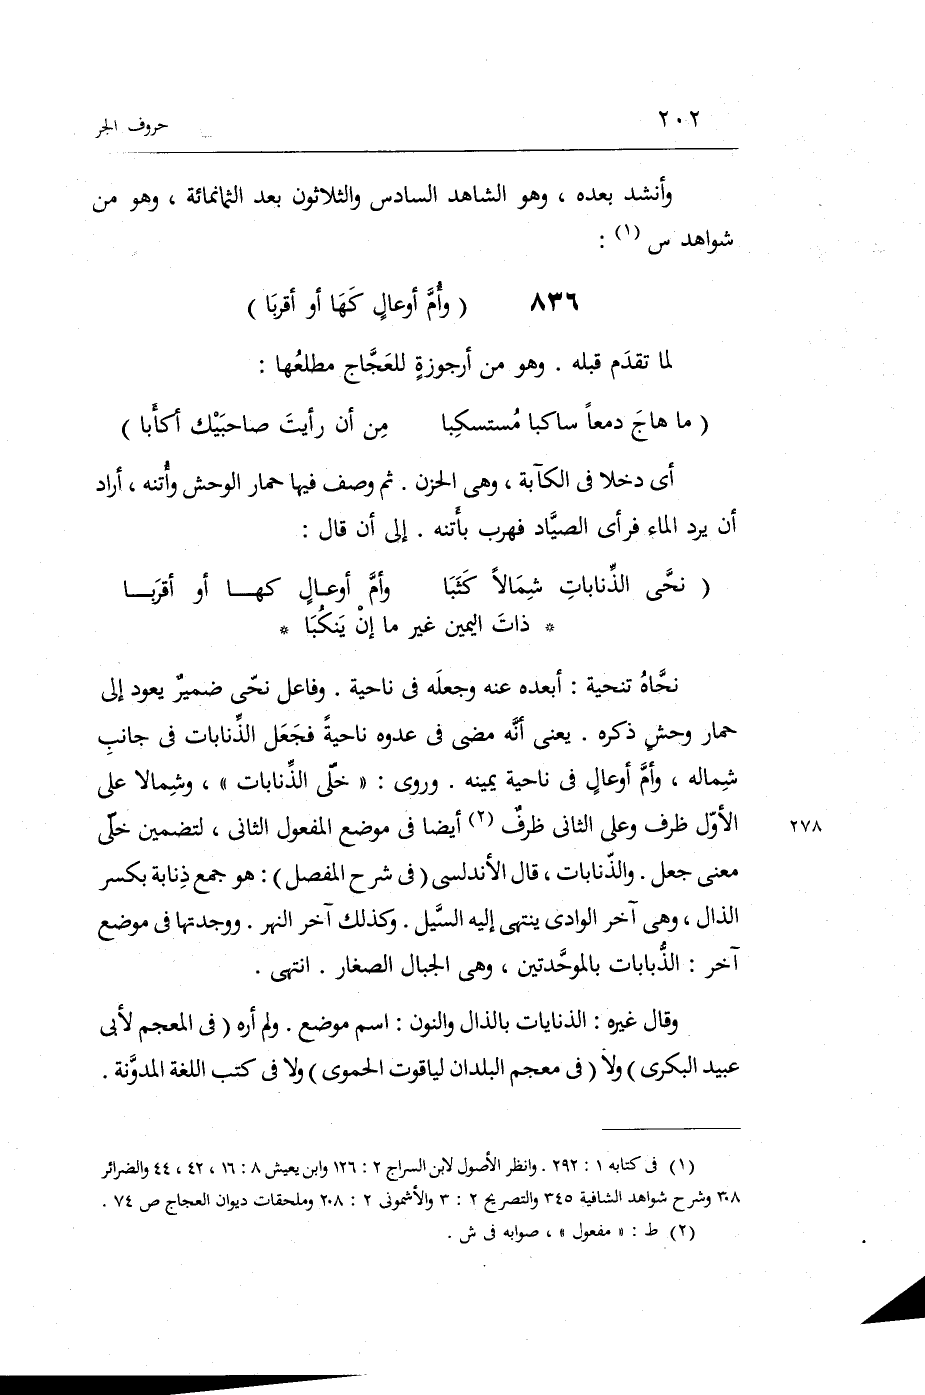 ٢٠٢
حروف الجر
وأنشد بعده ، وهو الشاهد السادس والثلاثون بعد الثمانمائة ، وهو من
شواهد س (١) :
٨٣٦ ( وأُمَّ أوعالٍ كَهَا أو أقربَا )
لما تقدَم قبله . وهو من أرجوزةٍ للعَجَّاج مطلعُها :
( ما هاجَ دمعاً ساكبا مُستسكِبا مِن أن رأيتَ صاحبَيْك أكأَبا )
أى دخلا فى الكآبة ، وهى الحزن . ثم وصف فيها حمار الوحش وأُتنه ، أراد
أن يرد الماء فرأى الصيَّاد فهرب بأُتنه . إلى أن قال :
( نحَّى الذِّناباتِ شِمَالاً كَثَبَا وأمَّ أوعـالٍ كهـــا أو أقرَبَـــا
* ذاتَ اليمين غير ما إنْ يَنكُبَا *
نحَّاهُ تنحية : أبعده عنه وجعلَه فى ناحية . وفاعل نحّى ضميرٌ يعود إلى
حمار وحشٍ ذكره . يعنى أنَّه مضى فى عدوه ناحيةً فجَعَل الذِّنابات فى جانبِ
شِماله ، وأمَّ أوعالٍ فى ناحية يمينه . وروى : « خلّى الذِّنابات » ، وشِمالا على
الأوّل ظرف وعلى الثانى ظرفٌ (٢) أيضا فى موضع المفعول الثانى ، لتضمين خلّى
٢٧٨
معنى جعل . والذّنابات ، قال الأندلسى ( فى شرح المفصل ) : هو جمع ذِنابة بكسر
الذال ، وهى آخر الوادى ينتهى إليه السَّيل . وكذلك آخر النهر . ووجدتها فى موضع
آخر : الذُّبابات بالموحَّدتين ، وهى الجبال الصغار . انتهى .
وقال غيره : الذنايات بالذال والنون : اسم موضع . ولم أره ( فى المعجم لأبى
عبيد البكرى ) ولا ( فى معجم البلدان لياقوت الحموى ) ولا فى كتب اللغة المدوَّنة .
(١) فى كتابه ١ : ٢٩٢ . وانظر الأصول لابن السراج ٢ : ١٢٦ وابن يعيش ٨ : ١٦ ، ٤٢ ، ٤٤ والضرائر
٣٠٨ وشرح شواهد الشافية ٣٤٥ والتصريح ٢ : ٣ والأشمونى ٢ : ٢٠٨ وملحقات ديوان العجاج ص ٧٤ .
(٢) ط : « مفعول » ، صوابه فى ش .